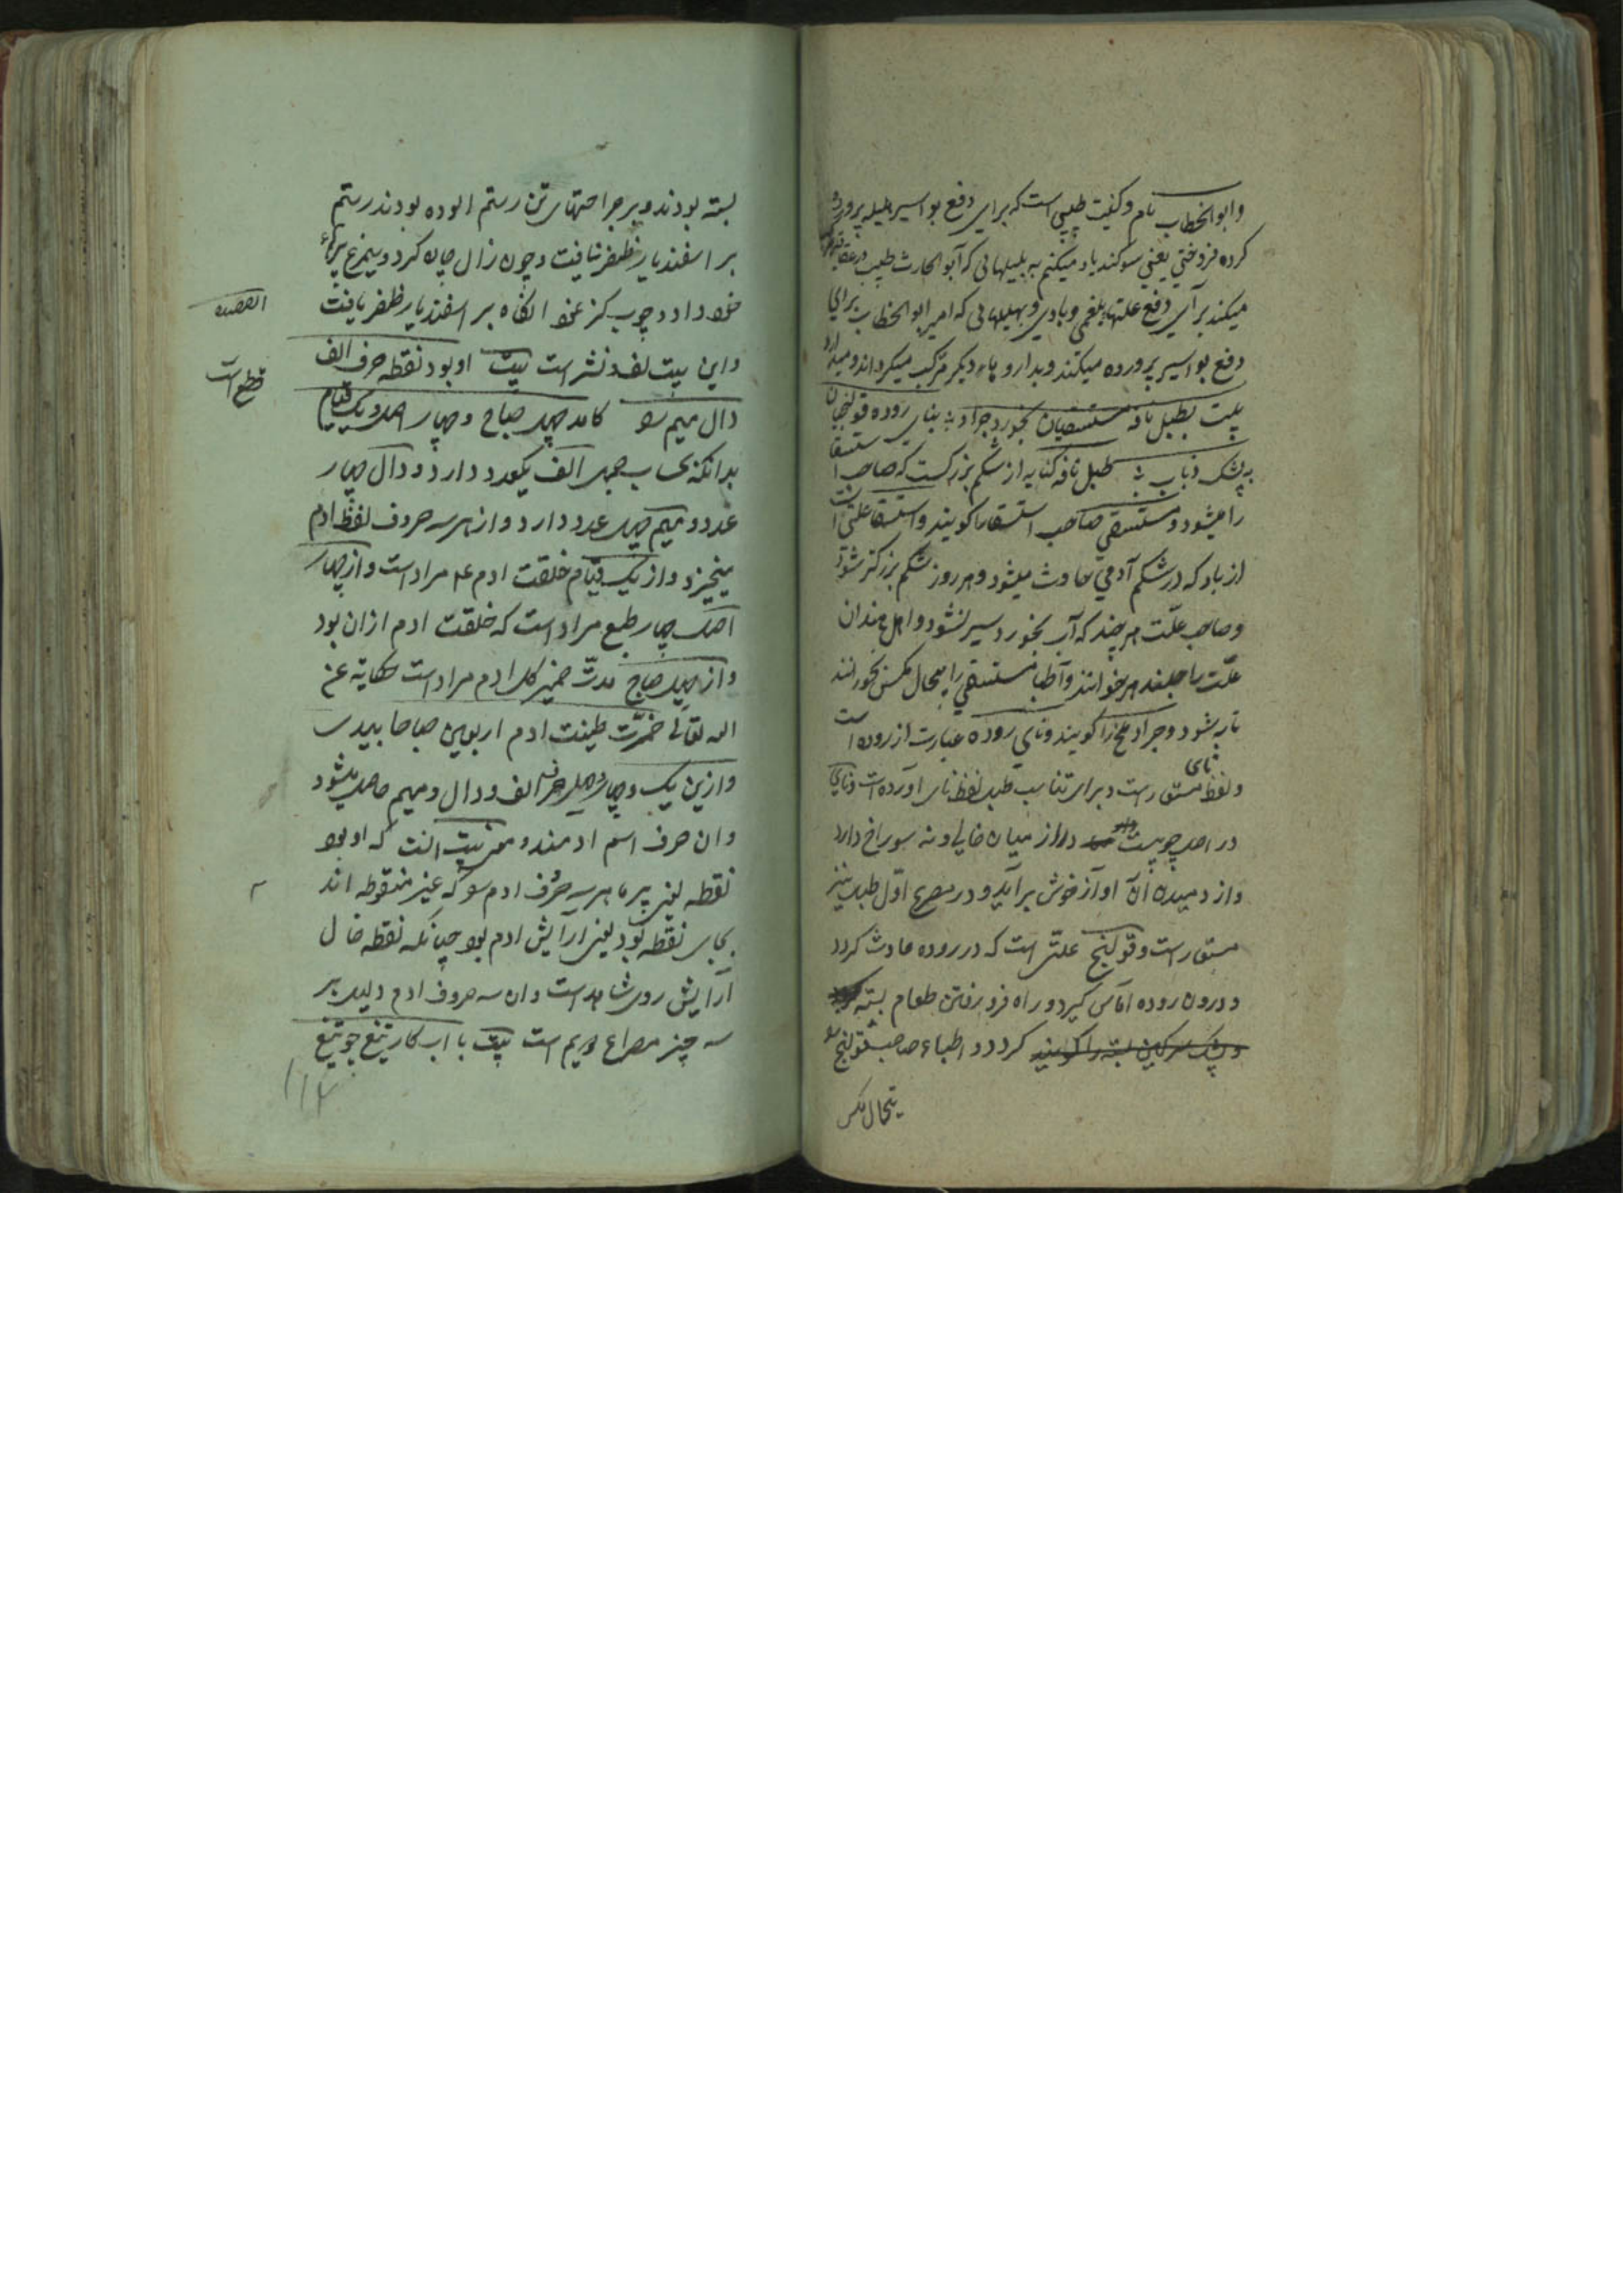 وابوالخطاب نام وکنیت طبیبی است که برای دفع بواسیر هلیله پرورده
کرده فروختی یعنی سوکند یاد میکنم به بلیلهائی که آبو الحارث طبیب در
میکند برآی دفع علتهاء بلغمی وبادی وبهلیلهائی که امیر ابو الخطاب برای
دفع بواسیر پرورده میکند وبدارو هاء دیگر مرکب میکرداند ومیدارد
بیت بطبل نافه مستسقیان بخورد جراد ؛ بنای روده قولنجیان
به پشک ذباب ؛ طبل نافه کنایه از شکم بزرکست که صاحب استسقا
را میشود ومستسقی صاحب استسقا را کویند واستسقا علتی است
از باد که در شکم آدمی حادث میشود وهر روز شکم بزرکتر شود
وصاحب علّت هر چند که آب بخورد سیر نشود واهل هندان
علّت را جلندهر خوانند وآطبا مستسقی را بیخال مکس بخورانند
تا به شود وجراد ملخ را کویند ونای روده عبارت از روده است
نای
ولفظ مستعار است وبرای تناسب طبل لفظ نای اورده است ونای
در اصل چوبیست دراز از میان خالی ونه سوراخ دارد
واز دمیدن آن اواز خوش برآید ودر مصرع اوّل طبل نیز
مستعار است وقولنج علتی است که در روده حادث کردد
ودرون روده آماس کیرد وراه فرو رفتن طعام بسته
وپشک سرکین بسته را کویند کردد واطباء صاحب قولنج را
بیخال مکس
بسته بودند وبر جراحتهای تن رستم الوده بودند رستم
بر اسفندیار ظفر نیافت وچون زال چاره کرد وسیمرغ پرهاء
خود داد وچوب کز نمود انکاه بر اسفندیار ظفر یافت
واین بیت لف ونشر است بیت او بود نقطه حرف الف
دال میم را کامد چهل صباح وچهار اصل ویک قیام
بدانکه بحساب جمل الف یکعدد دارد ودال چهار
عدد ومیم چهل عدد دارد واز هر سه حروف لفظ ادم
میخیزد واز یک قیام خلقت ادم ع م مراد است واز چهار
اصل چهار طبع مراد است که خلقت ادم ازان بود
واز چهل صباح مدت خمیر کل ادم مراد است حکایة عن
الله تعالی خمرّت طینت ادم اربعین صباحا بیدی
وازین یک وچهار وچهل حرف الف ودال ومیم حاصل میشود
وان حرف اسم ادمند ومعنی بیت انست که او بود
نقطه یعنی پیر ما هر سه حرف ادم را که غیر منقوطه اند
بجای نقطه بود یعنی آرایش ادم بود چنانکه نقطه خال
آرایش روی شاهد است وان سه حروف ادم دلیل بر
سه چیز مصراع دویم است بیت با اب کار تیغ چو تیغ
القصه
قطع است
۱۱۴